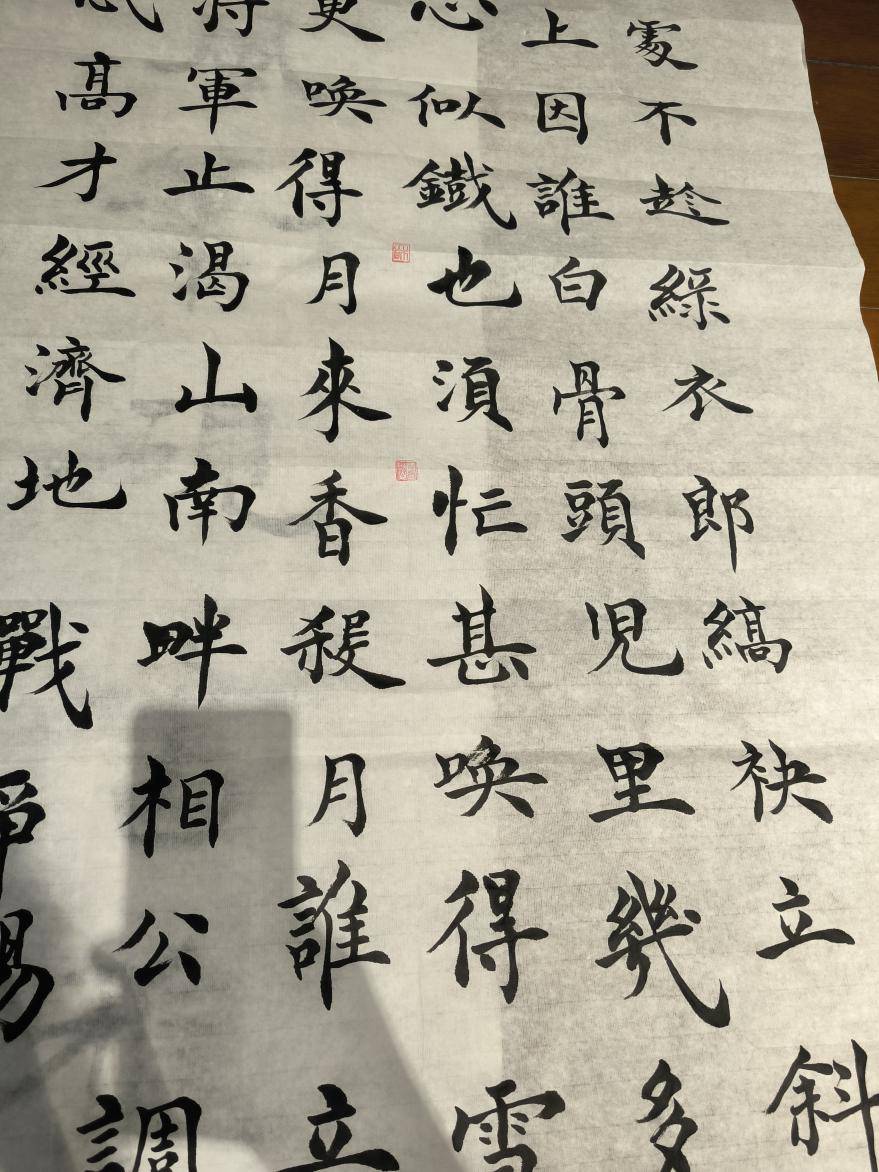 處不趁綠衣郎縞袂立斜
上因誰白骨頭児里幾多
心似鐵也須忙甚喚得雪
更喚得月來香殺月誰立
將軍止渴山南畔相公調
高才經濟地戰爭場